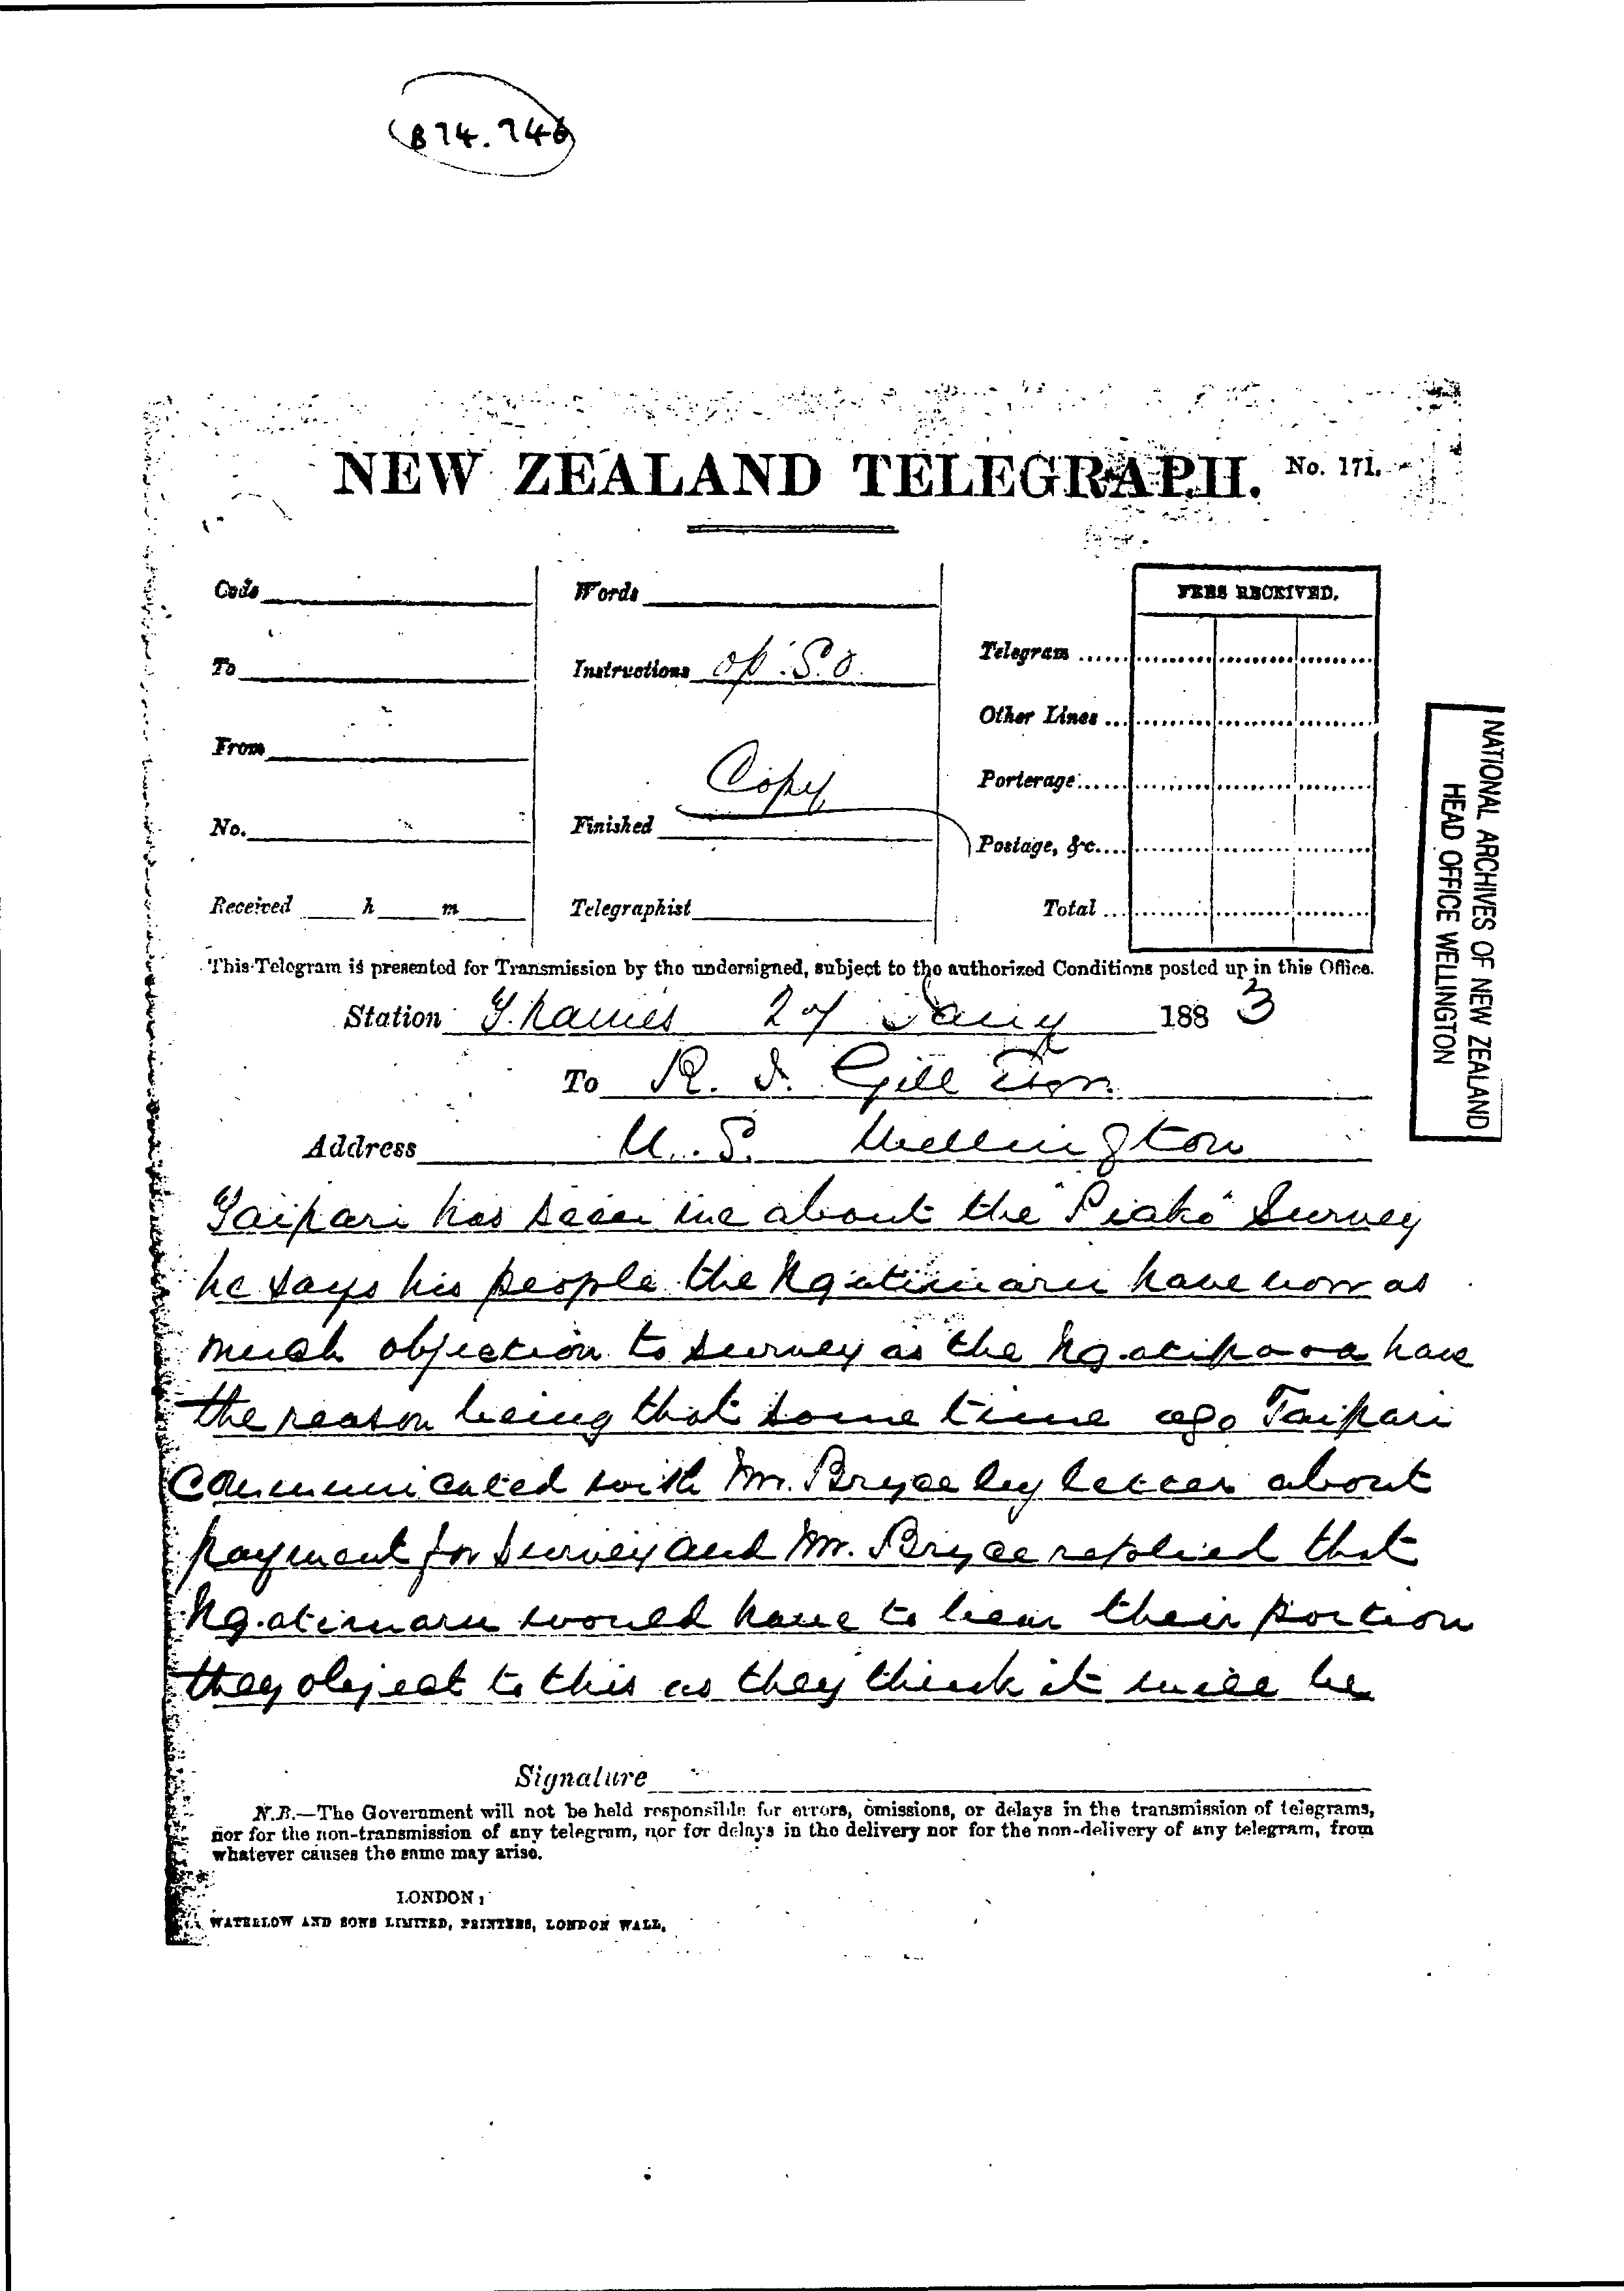 B74.746
NEW ZEALAND TELEGRAPH. No. 171.
Code
Words
FEES RECEIVED.
To
Instructions op. S. O.
Telegram
Other Lines
From
Copy
Porterage
No.
Finished
Postage, &c.
Received h m
Telegraphist
Total
This Telegram is presented for Transmission by the undersigned, subject to the authorized Conditions posted up in this Office.
Station Thames 27 Jany 1883
To R. J. Gill Esqr.
Address U. S. Wellington
Taipari has seen me about the "Piako" Survey
he says his people the Ngatimaru have now as
much objection to survey as the Ngatipaoa have
the reason being that some time ago Taipari
communicated with Mr. Bryce by letter about
payment for survey and Mr. Bryce replied that
Ngatimaru would have to bear their portion
they object to this as they think it will be
Signature
N.B.—The Government will not be held responsible for errors, omissions, or delays in the transmission of telegrams,
nor for the non-transmission of any telegram, nor for delays in the delivery nor for the non-delivery of any telegram, from
whatever causes the same may arise.
LONDON:
WATERLOW AND SONS LIMITED, PRINTERS, LONDON WALL.
NATIONAL ARCHIVES OF NEW ZEALAND
HEAD OFFICE WELLINGTON